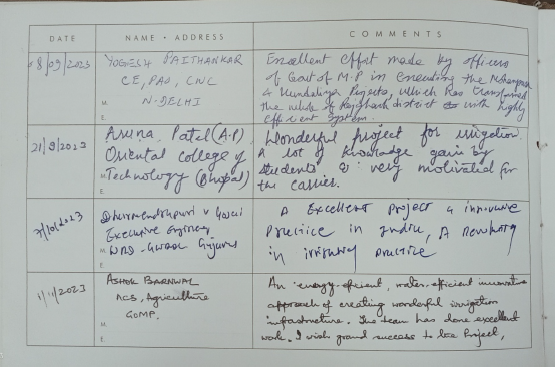 DATE NAME • ADDRESS COMMENTS
08/09/2023
YOGESH PAITHANKAR
CE, PAO, CWC
M. N-DELHI
E.
Excellent effort made by officers
of Govt of M.P in executing the Mohanpura
& Kundaliya Projects, which has transformed
the whole of Rajgarh district with highly
efficient system.
21/9/2023
Aruna Patel (A.P)
Oriental college of
M. Technology (Bhopal)
E.
Wonderful project for irrigation
A lot of knowledge gain by
students & very motivated for
the carrier.
7/10/2023
Executive Engineer
M.
E.
A Excellent project & innovative
Practice in India, A
in practice
1/11/2023
ASHOK BARNWAL
ACS, Agriculture
M. GOMP.
E.
An energy-efficient, water-efficient innovative
approach of creating wonderful irrigation
infrastructure. The team has done excellent
work. I wish grand success to the Project,